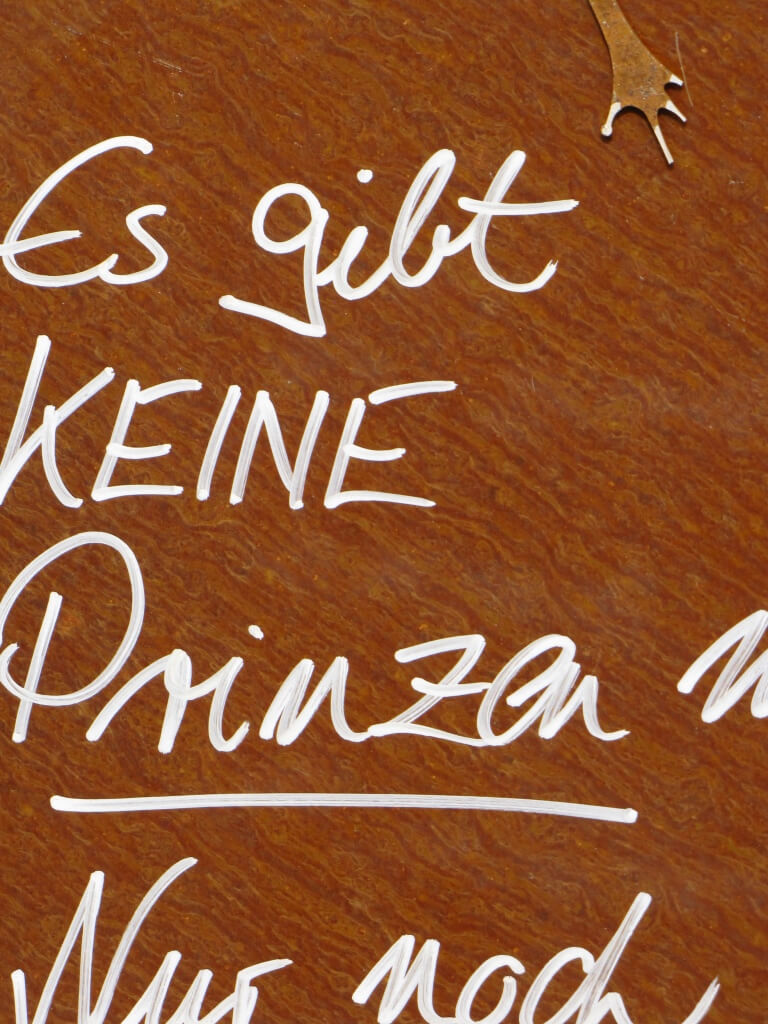 Es gibt
KEINE
Prinzen
Nur noch